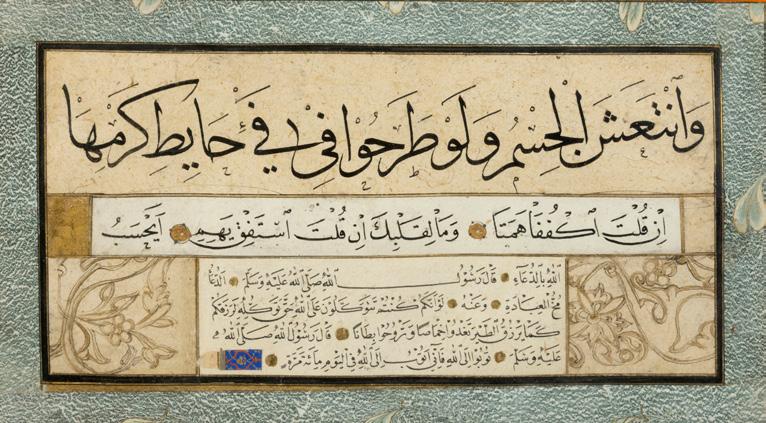 وَانْتَعَشَ الْجِسْمُ وَلَوْ طَرَحُوا فِي فَيْءِ حَايِطِ كَرْمِهَا
اِنْ قُلْتَ اكْفُفَا هَمَتَا وَمَا لِقَلْبِكَ اِنْ قُلْتَ اسْتَفِقْ يَهِمِ اَيَحْسَبُ
الله بالدعاء قال رسول الله صلى الله عليه وسلم الدعا
مخ العبادة وعنه لو انكم كنتم تتوكلون على الله حق توكله لرزقكم
كما يرزق الطير تغدوا خماصا وتروحوا بطانا قال رسول الله صلى الله
عليه وسلم توبوا الى الله فاني اتوب الى الله في اليوم مائة مرة